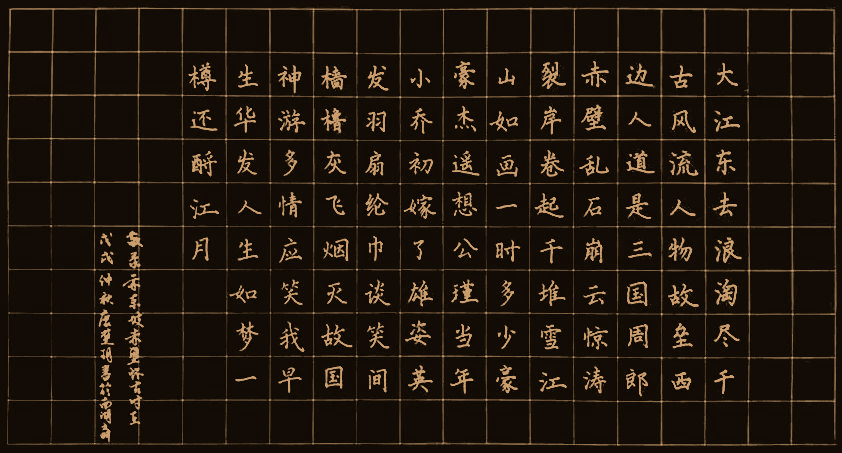 大江东去浪淘尽千
古风流人物故垒西
边人道是三国周郎
赤壁乱石崩云惊涛
裂岸卷起千堆雪江
山如画一时多少豪
豪杰遥想公瑾当年
小乔初嫁了雄姿英
发羽扇纶巾谈笑间
樯橹灰飞烟灭故国
神游多情应笑我早
生华发人生如梦一
樽还酹江月
东坡赤壁怀古时在
戊戌仲秋书于西湖